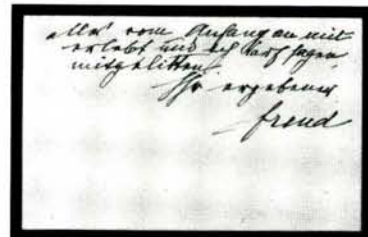 alles vom Anfang an mit
erlebt und ich darf sagen
mitgelitten
Ihr ergebener
Freud